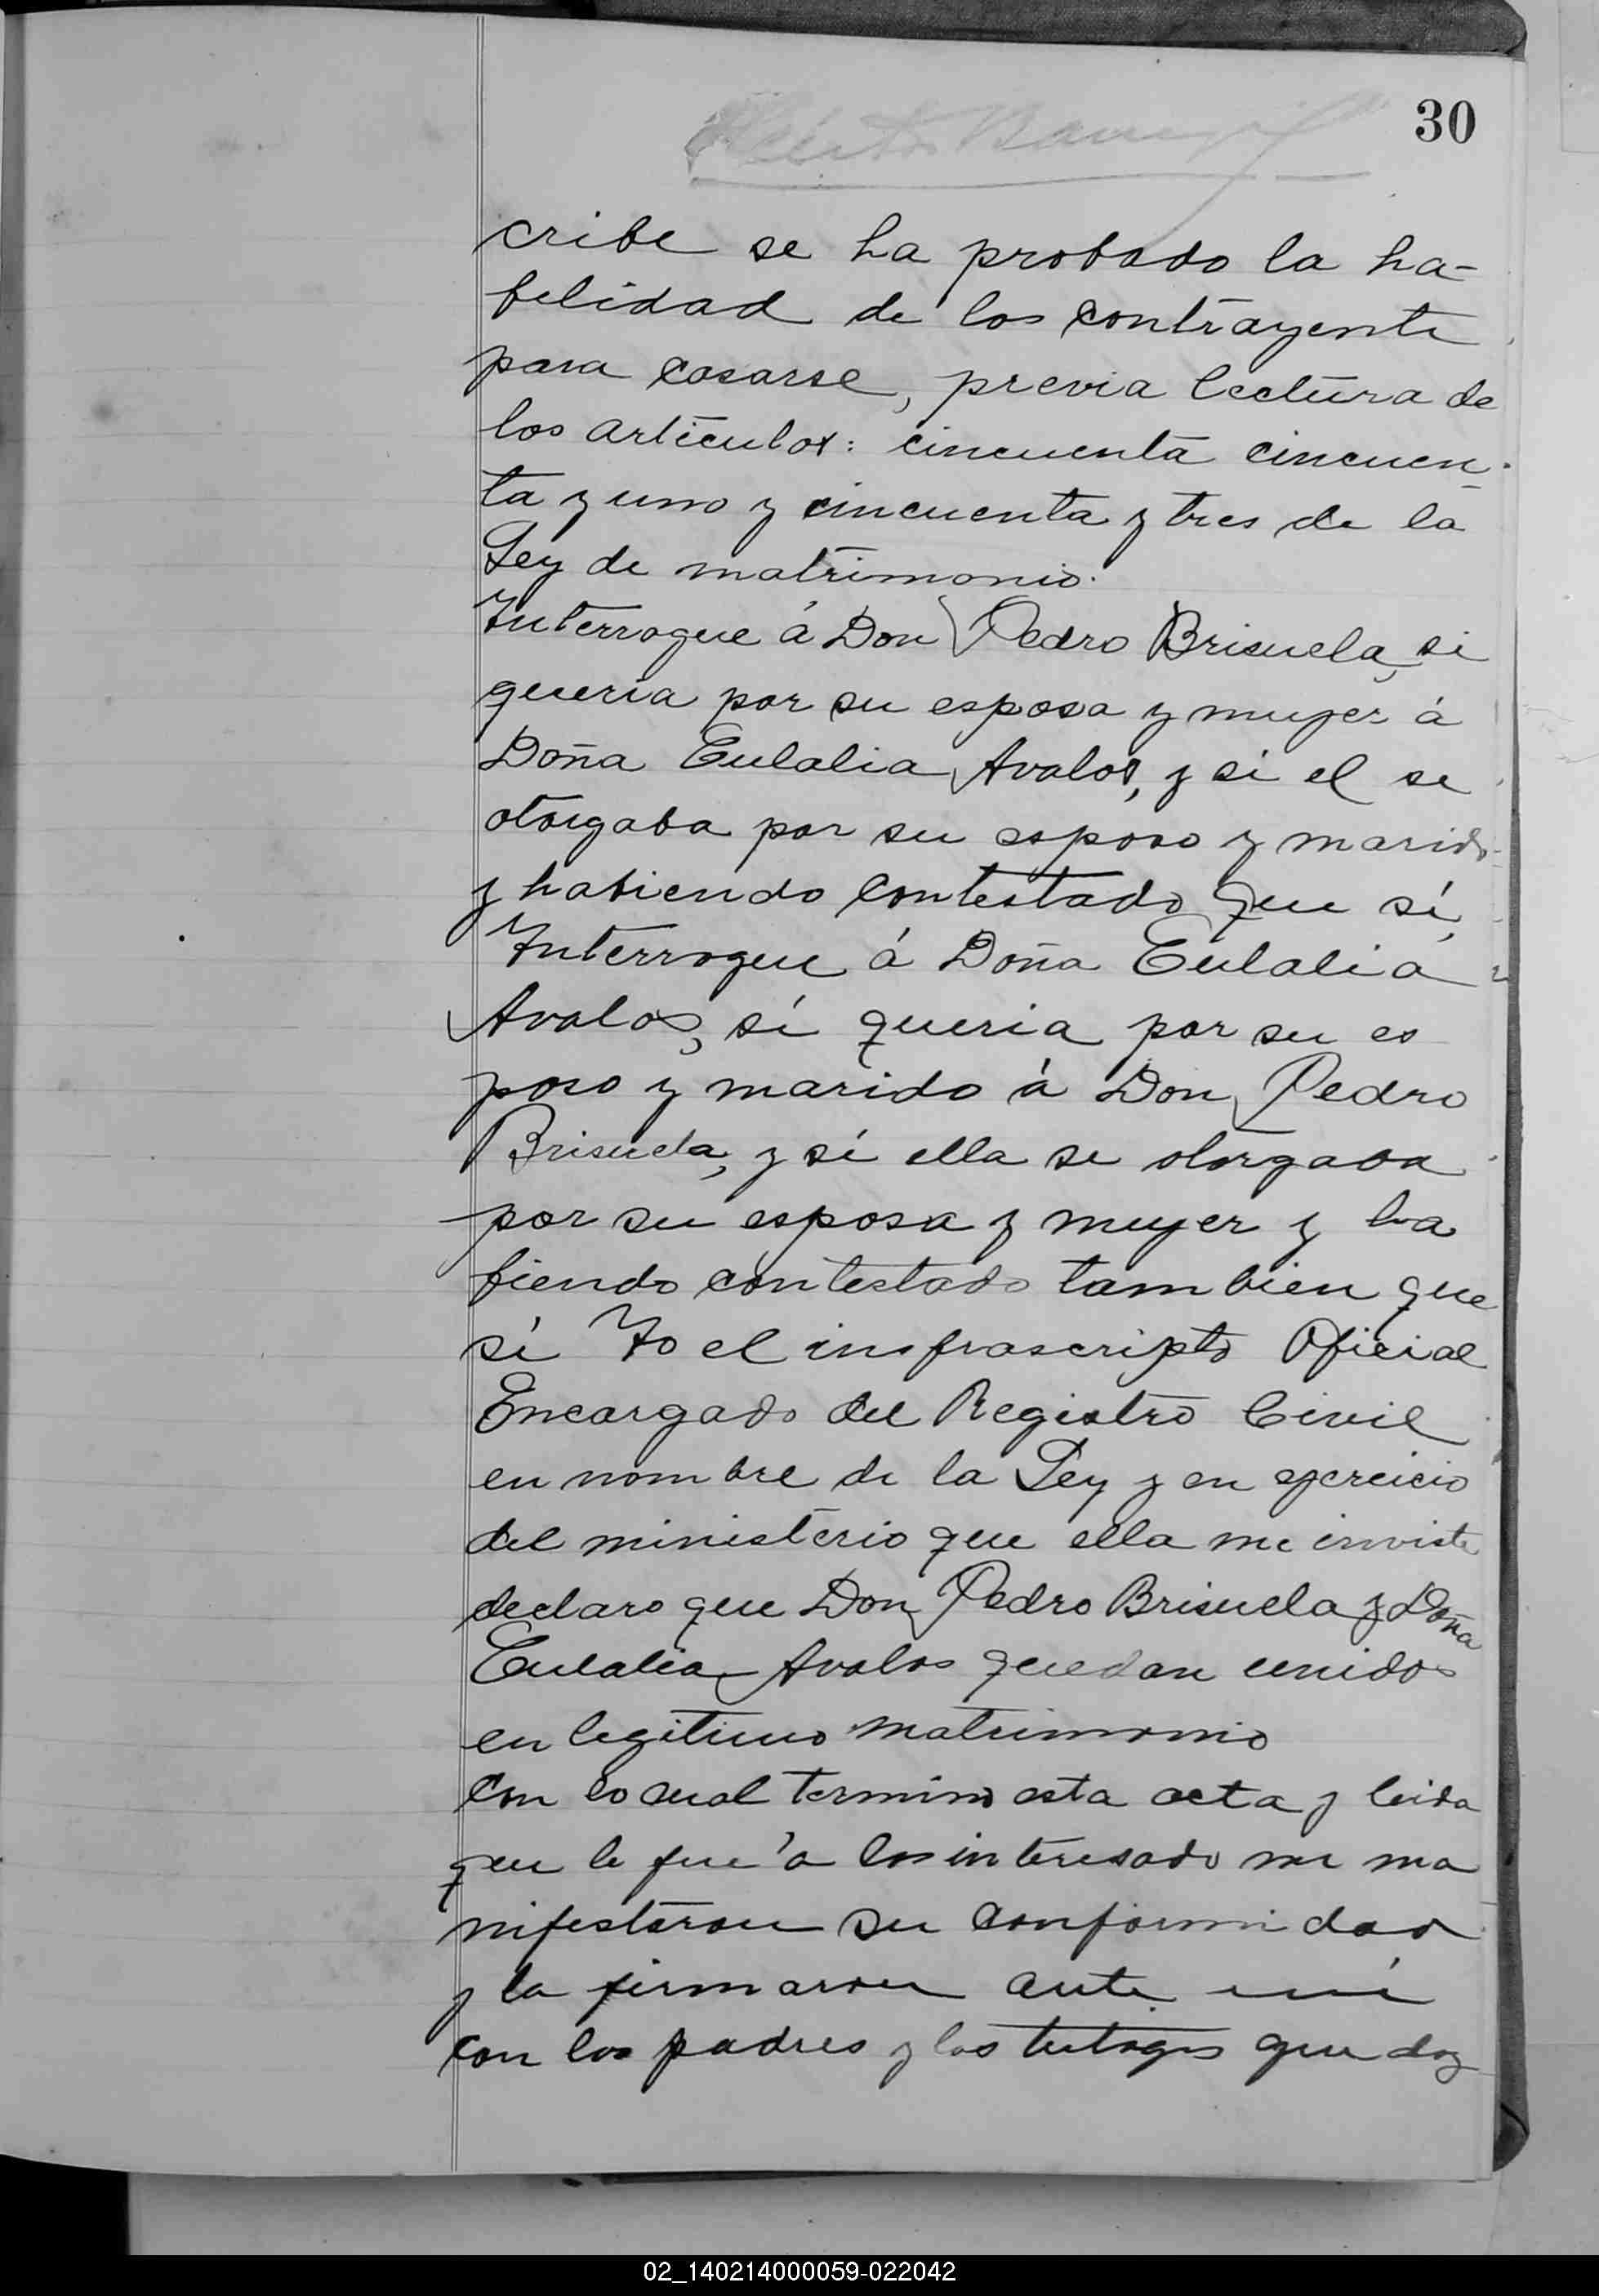 30
cribe se ha probado la ha-
belidad de los contrayente
para casarse, previa lectura de
los articulos: cincuenta cincuen-
ta y uno y cincuenta y tres de la
Ley de matrimonio.
Interrogue á Don Pedro Brisuela, si
queria por su esposa y mujer á
Doña Eulalia Avalos, y si el se
otorgaba por su esposo y marido
y habiendo contestado que sí,
Interrogue á Doña Eulalia
Avalos, sí queria por su es
poso y marido á Don Pedro
Brisuela, y sí ella se otorgaba
por su esposa y mujer y ha
biendo contestado tambien que
sí Yo el insfrascripto Oficial
Encargado del Registro Civil
en nombre de la Ley y en ejercicio
del ministerio que ella me inviste
declaro que Don Pedro Brisuela y Doña
Eulalia Avalos quedan unidos
en legitimo matrimonio
Con lo cual termino esta acta y leida
que le fue á los interesado me ma
nifestaron su conformidad
y la firmaron ante mí
con los padres y los que doy
02_140214000059-022042